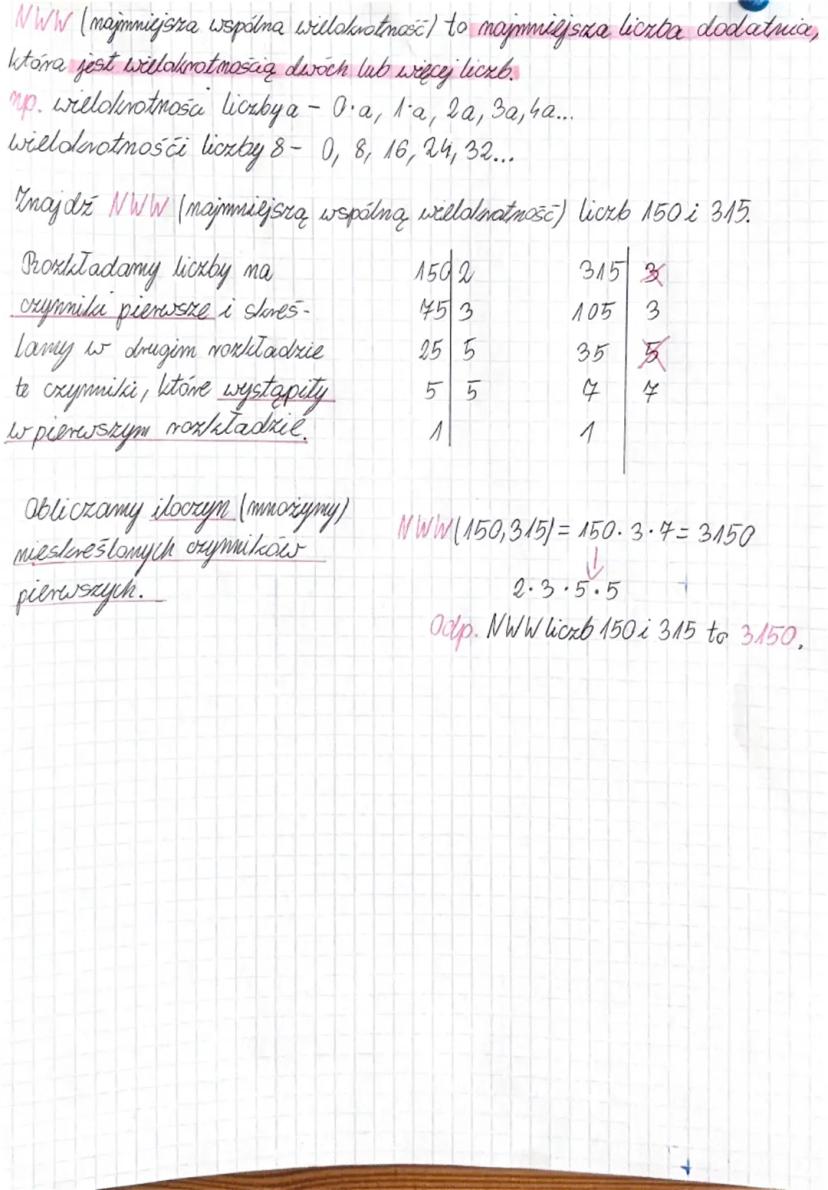 NWW (najmniejsza wspólna wielokrotność) to najmniejsza liczba dodatnia,
która jest wielokrotnością dwóch lub więcej liczb.
np. wielokrotności liczby a - 0·a, 1·a, 2a, 3a, 4a...
wielokrotnośći liczby 8 - 0, 8, 16, 24, 32...
Znajdź NWW (najmniejszą wspólną wielokrotność) liczb 150 i 315.
Rozkładamy liczby na
czynniki pierwsze i skreś-
lamy w drugim rozkładzie
te czynniki, które wystąpiły
w pierwszym rozkładzie.
150 2
75 3
25 5
5 5
1
315 3
105 3
35 5
7 7
1
Obliczamy iloczyn (mnożymy)
nieskreślonych czynników
pierwszych.
NWW(150,315) = 150 · 3 · 7 = 3150
↓
2·3·5·5
Odp. NWW liczb 150 i 315 to 3150.